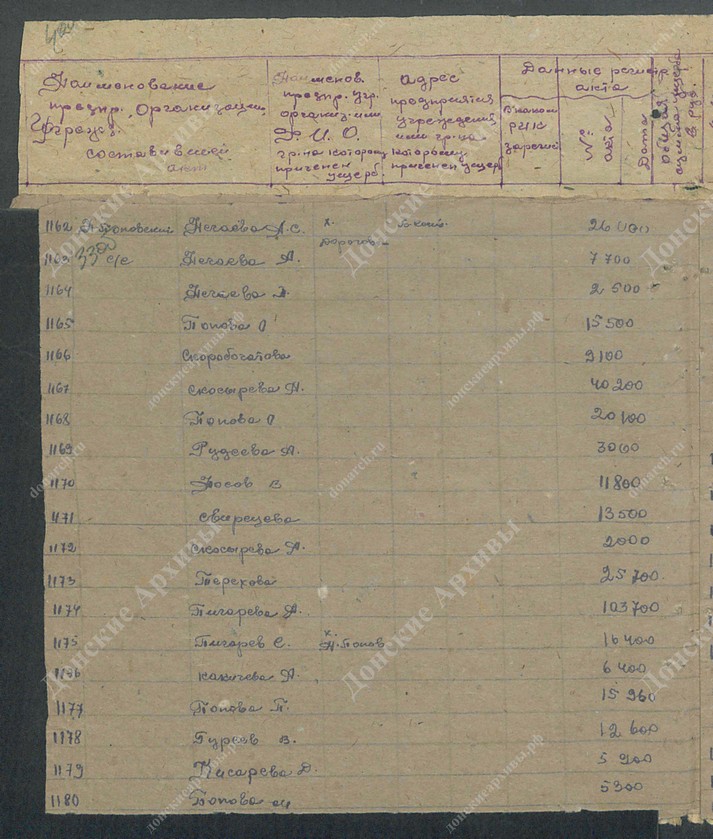 Наименование
предпр. Организации
Учрежд.
составивший
акт
Наименов.
предпр. учр.
организ. или
Ф. И. О.
гр-на которому
причинен
ущерб.
адрес
предприятия
учреждения
или гр-на
которому
причинен ущерб
Данные регистр.
акта
В каком
РИК
зарегис
№
акта
Дата
общая
сумма ущерба
в руб.
1162 Нечаева А. С. х. 26 400
33 с/с
1163 Нечаева А. 7 700
1164 Нечаева 2 600
1165 Попова О 15 500
1166 Скоробогатова 2100
1167 Скосырева А. 40 200
1168 Попова О. 20 100
1169 Рудеева А. 3000
1170 Носов В 11 800
1171 Свирецева 13 500
1172 Скосырева А. 2000
1173 Терехова 25 700
1174 Пигарева А. 103 700
1175 Пигарев С. х. Н. Попов 16 400
1176 А. 6 400
1177 Попова П. 15 960
1178 Гуреев В. 12 600
1179 Писарева Д. 5 200
1180 Попова 5300
Донские Архивы
donarch.ru
донскиеархивы.рф